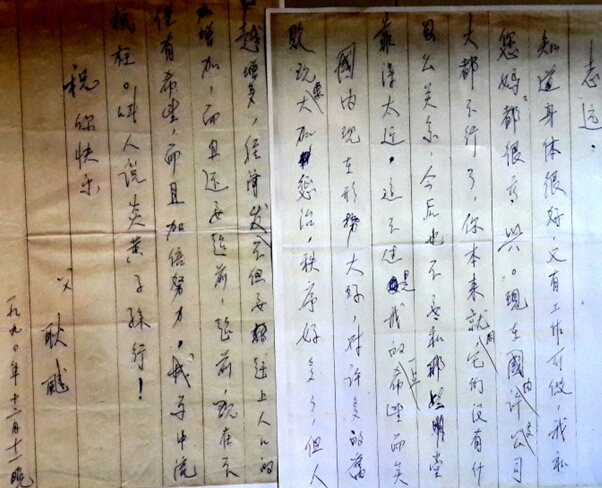 志远:
知道身体很好,又有工作可做,我和
您妈都很高兴。现在國内许多公司
大都不行了,你本来就用它的没有什
么公关系,今后也不要和那些明堂
靠得太近。这不过是我的希望而矣
國内现在形势大好,对许多的舊
败现大加惩治,秩序好多了,但人
越增多,经济发不但要赶上人口的
增加,而且还要超前,超前,现在不
但有希望,而且加倍努力,我等中流
砥柱。叫人说炎黄子孫行!
祝你快乐
父 耿飚
一九九〇年十二月十一晚